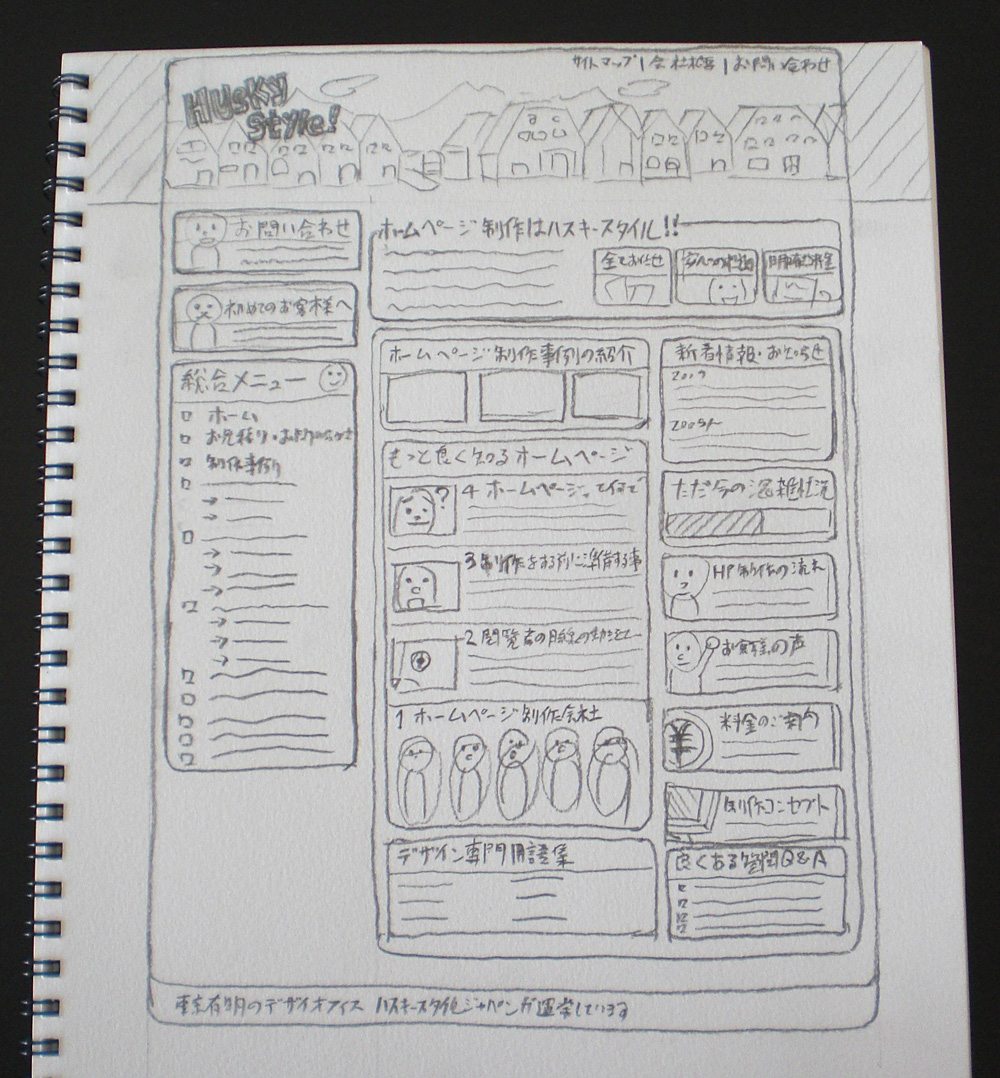 サイトマップ | 会社概要 | お問い合わせ
Husky
Style!
お問い合わせ
初めてのお客様へ
総合メニュー
ホーム
お見積り・お問い合わせ
制作事例
ホームページ制作はハスキースタイル!!
全てお任せ
安心の
明確料金
ホームページ制作事例の紹介
もっと良く知るホームページ
4 ホームページって何?
3 制作をする前に準備する事
2 閲覧者の目線の動き
1 ホームページ制作会社
デザイン専門用語集
新着情報・お知らせ
2009
ただ今の混雑状況
HP制作の流れ
お客様の声
料金のご案内
制作コンセプト
良くある質問Q&A
東京有明のデザイオフィス ハスキースタイルジャパンが運営しています